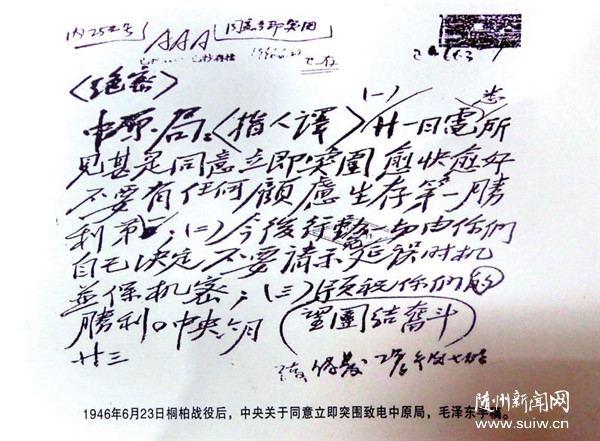 内252号
AAA
同意立即突围
1946.6.23
〈绝密〉
中原局:〈指人译〉(一)廿一日電所
见甚是同意立即突圍愈快愈好
不要有任何顧慮生存第一勝
利第一;(二)今後行動一切由你们
自己决定不要請示延误时机
並保机密;(三)預祝你们的
勝利。中央六月(望團結奮斗)
廿三
随州新闻网
www.suiw.cn
1946年6月23日桐柏战役后,中央关于同意立即突围致电中原局,毛泽东手稿。